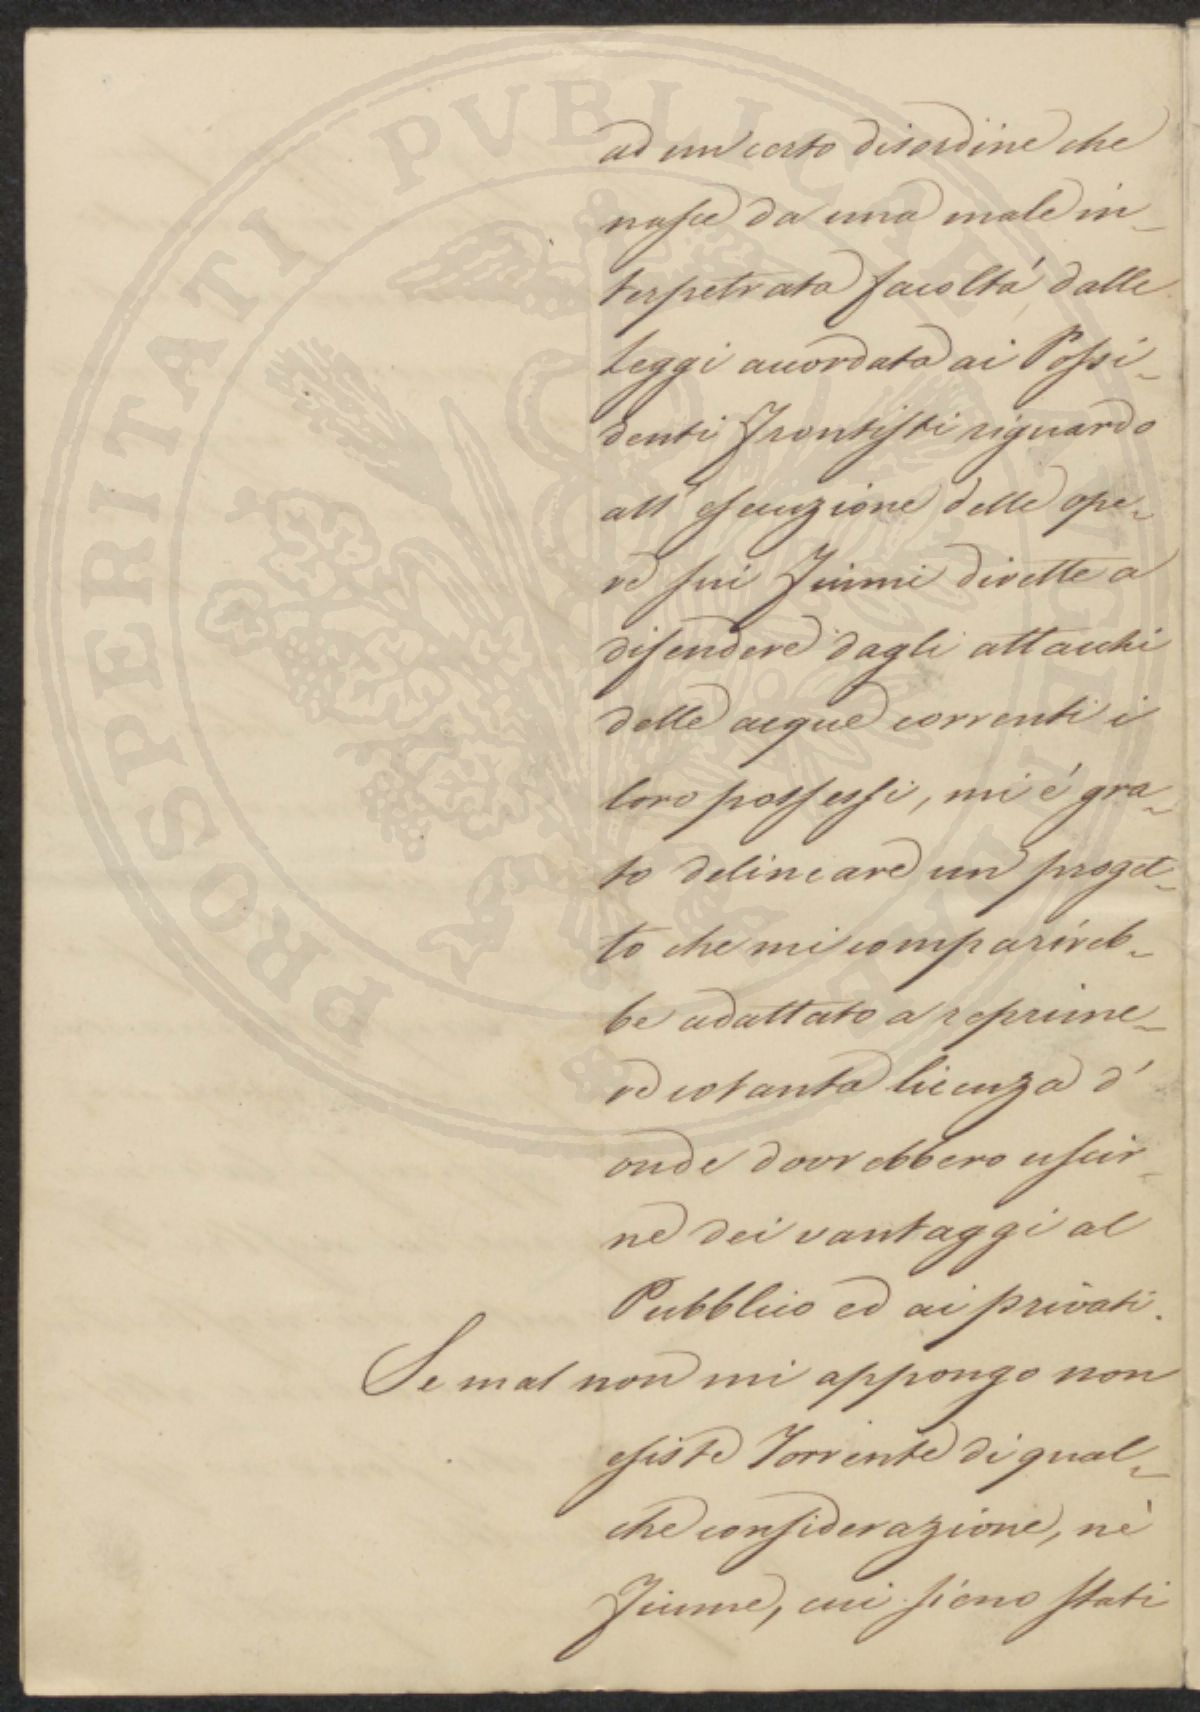 ad un certo disordine che
nasce da una male in-
terpetrata facoltá dalle
Leggi accordata ai Possi-
denti Frontisti riguardo
all' esecuzione delle ope-
re sui Fiumi dirette a
difendere dagli attacchi
delle acque correnti i
loro possessi, mi é gra-
to delineare un proget-
to che mi comparireb-
be adattato a reprime-
re cotanta licenza d'
onde dovrebbero uscir-
ne dei vantaggi al
Pubblico ed ai privati.
Se mal non mi appongo non
esiste Torrente di qual-
che considerazione, né
Fiume, cui sieno stati
PROSPERITATI PVBLICAE AVGENDAE